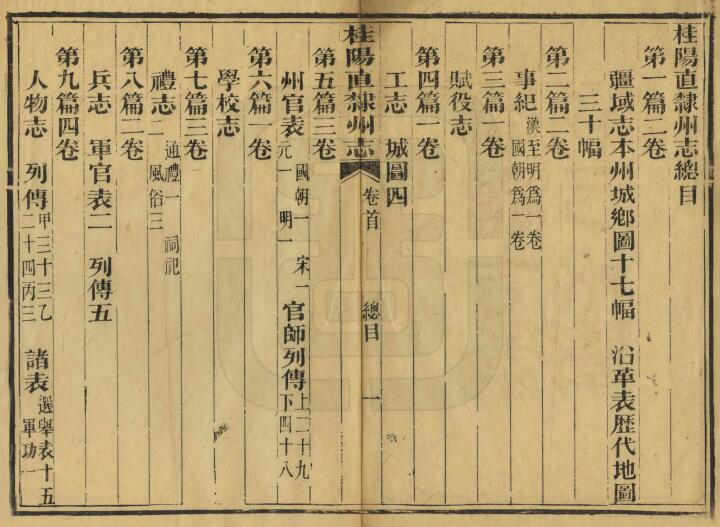 桂陽直隸州志總目
第一篇二卷
疆域志本州城鄉圖十七幅 沿革表歷代地圖
三十幅
第二篇二卷
事紀漢至明爲一卷 國朝爲一卷
第三篇一卷
賦役志
第四篇一卷
工志 城圖四
桂陽直隸州志 卷首 總目 一
第五篇三卷
州官表國朝一 宋一 元一 明一 官師列傳上二十九 下四十八
第六篇一卷
學校志
第七篇三卷
禮志通禮一 祠祀一 風俗三
第八篇二卷
兵志 軍官表二 列傳五
第九篇四卷
人物志 列傳甲三十三乙二十四丙三 諸表選舉表十五 軍功一